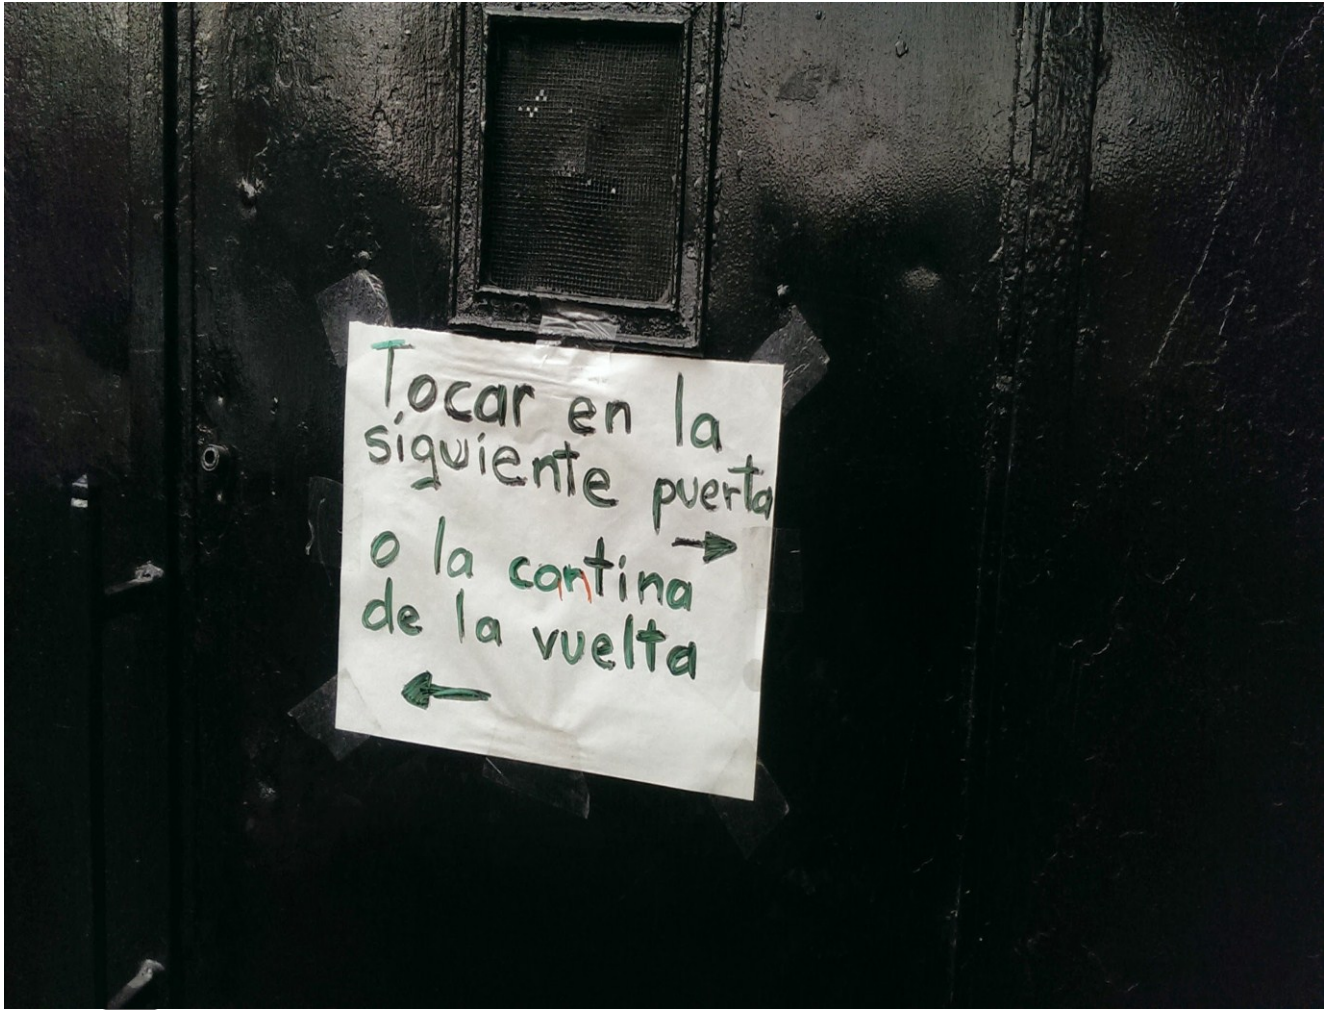 Tocar en la
siguiente puerta
→
o la cantina
de la vuelta
←